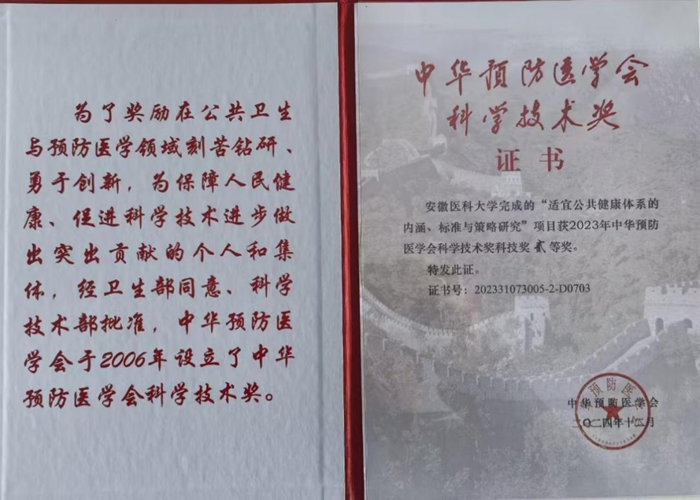 为了奖励在公共卫生
与预防医学领域刻苦钻研、
勇于创新，为保障人民健
康、促进科学技术进步做
出突出贡献的个人和集
体，经卫生部同意、科学
技术部批准，中华预防医
学会于2006年设立了中华
预防医学会科学技术奖。
中华预防医学会
科学技术奖
证书
安徽医科大学完成的“适宜公共健康体系的
内涵、标准与策略研究”项目获2023年中华预防
医学会科学技术奖科技奖贰等奖。
特发此证。
证书号：202331073005-2-D0703
中华预防医学会
二〇二四年十二月